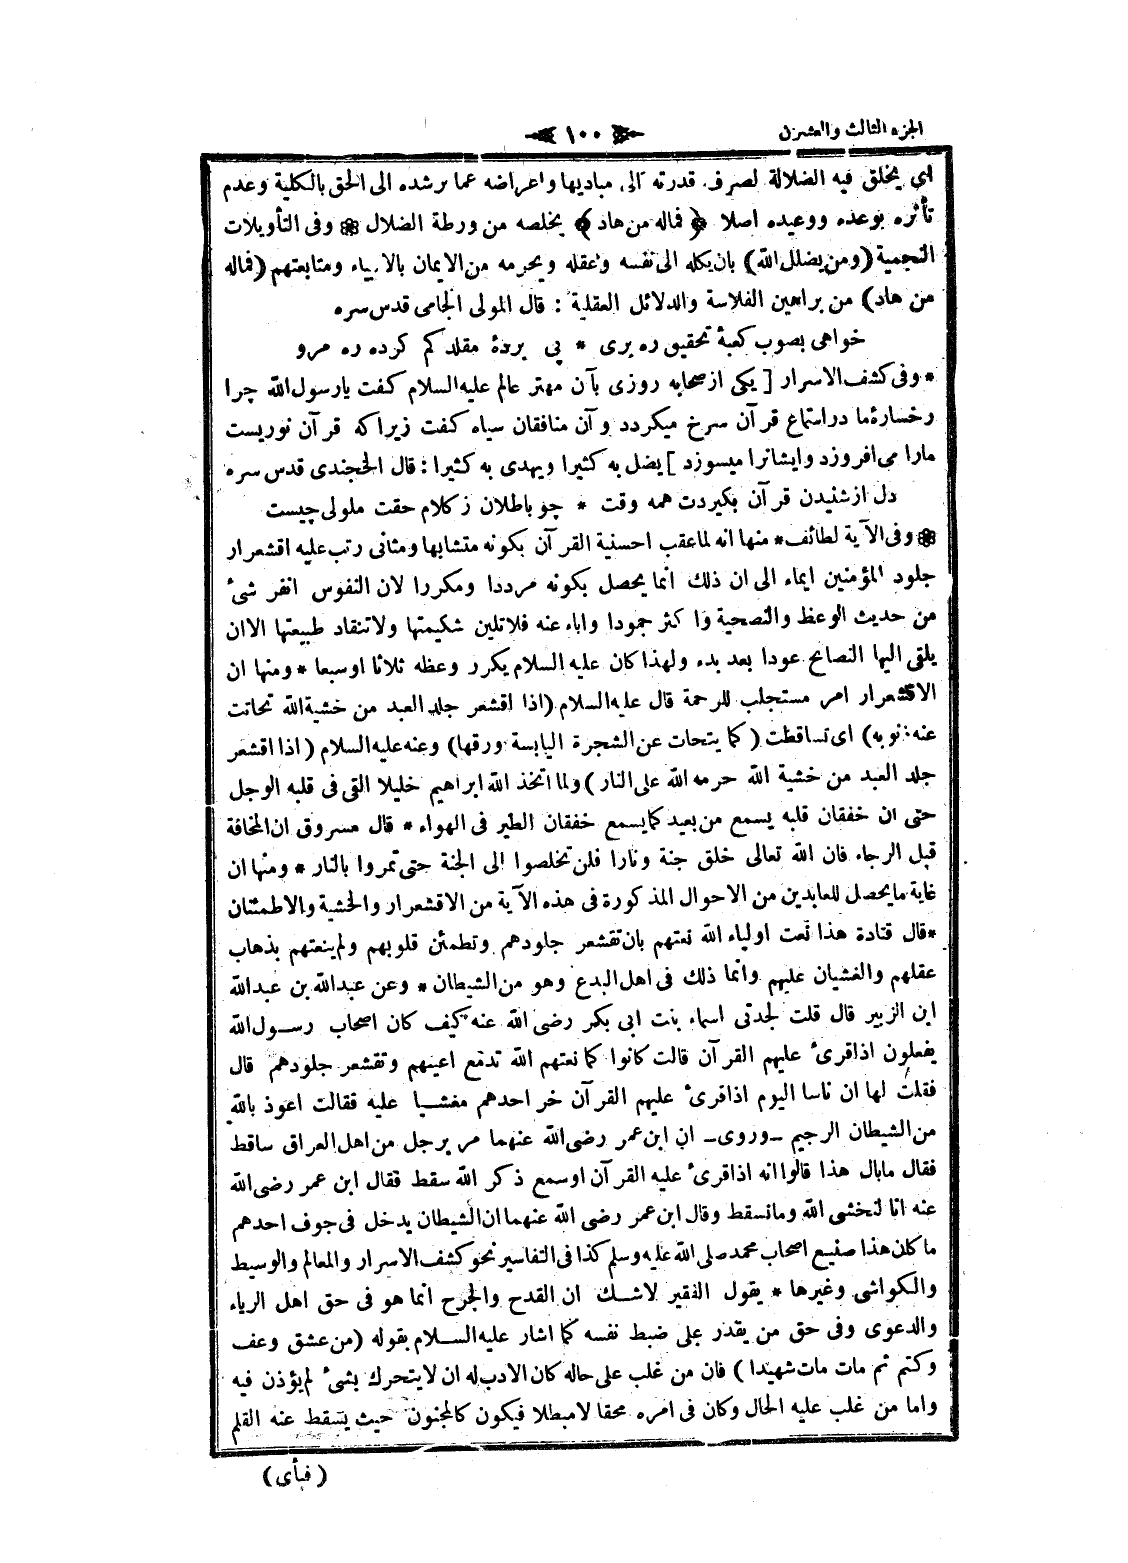 الجزء الثالث والعشرن
١٠٠
اى يخلق فيه الضلالة لصرف قدرته الى مباديها واعراضه عما يرشده الى الحق بالكلية وعدم
تأثره بوعده ووعيده اصلا ﴿ فماله من هاد ﴾ يخلصه من ورطة الضلال ❁ وفى التأويلات
النجمية (ومن يضلل الله) بان يكله الى نفسه وعقله ويحرمه من الايمان بالانبياء ومتابعتهم (فماله
من هاد) من براهين الفلاسفة والدلائل العقلية : قال المولى الجامى قدس سره
خواهى بصوب كعبهٔ تحقيق ره برى * پى بر پى مقلد كم كرده ره مرو
* وفى كشف الاسرار [ يكى از صحابه روزى بآن مهتر عالم عليه السلام كفت يارسول الله چرا
رخسارهٔ ما در استماع قرآن سرخ ميكردد وآن منافقان سياه كفت زيراكه قرآن نوريست
مارا مى افروزد وايشانرا ميسوزد ] يضل به كثيرا ويهدى به كثيرا : قال الخجندى قدس سره
دل از شنيدن قرآن بكيردت همه وقت * چو باطلان ز كلام حقت ملولى چيست
❁ وفى الآية لطائف * منها انه لماعقب احسنية القرآن بكونه متشابها ومثانى رتب عليه اقشعرار
جلود المؤمنين ايماء الى ان ذلك انما يحصل بكونه مرددا ومكررا لان النفوس انفر شىٔ
من حديث الوعظ والنصحية واكثر جمودا واباء عنه فلاتلين شكيمتها ولاتنقاد طبيعتها الاان
يلقى اليها النصايح عودا بعد بدء ولهذا كان عليه السلام يكرر وعظه ثلاثا اوسبعا * ومنها ان
الاقشعرار امر مستجلب للرحمة قال عليه السلام (اذا اقشعر جلد العبد من خشية الله تحاتت
عنه ذنوبه) اى تساقطت (كما يتحات عن الشجرة اليابسة ورقها) وعنه عليه السلام (اذا اقشعر
جلد العبد من خشية الله حرمه الله على النار) ولما اتخذ الله ابراهيم خليلا القى فى قلبه الوجل
حتى ان خفقان قلبه يسمع من بعيد كما يسمع خفقان الطير فى الهواء * قال مسروق ان المخافة
قبل الرجاء فان الله تعالى خلق جنة ونارا فلن تخلصوا الى الجنة حتى تمروا بالنار * ومنها ان
غاية مايحصل للعابدين من الاحوال المذكورة فى هذه الآية من الاقشعرار والخشية والاطمئنان
* قال قتادة هذا نعت اولياء الله نعتهم بان تقشعر جلودهم وتطمئن قلوبهم ولم ينعتهم بذهاب
عقلهم والغشيان عليهم وانما ذلك فى اهل البدع وهو من الشيطان * وعن عبدالله بن عبدالله
ابن الزبير قال قلت لجدتى اسماء بنت ابى بكر رضى الله عنه كيف كان اصحاب رسول الله
يفعلون اذاقرىٔ عليهم القرآن قالت كانوا كما نعتهم الله تدمع اعينهم وتقشعر جلودهم قال
فقلت لها ان ناسا اليوم اذاقرىٔ عليهم القرآن خر احدهم مغشيا عليه فقالت اعوذ بالله
من الشيطان الرجيم ـ وروى ـ ان ابن عمر رضى الله عنهما مر برجل من اهل العراق ساقط
فقال مابال هذا قالوا انه اذاقرىٔ عليه القرآن اوسمع ذكر الله سقط فقال ابن عمر رضى الله
عنه انا لنخشى الله ومانسقط وقال ابن عمر رضى الله عنهما ان الشيطان يدخل فى جوف احدهم
ماكان هذا صنيع اصحاب محمد صلى الله عليه وسلم كذا فى التفاسير نحو كشف الاسرار والمعالم والوسيط
والكواشى وغيرها * يقول الفقير لاشك ان القدح والجرح انما هو فى حق اهل الرياء
والدعوى وفى حق من يقدر على ضبط نفسه كما اشار عليه السلام بقوله (من عشق وعف
وكتم ثم مات مات شهيدا) فان من غلب على حاله كان الادب له ان لايتحرك بشىٔ لم يؤذن فيه
واما من غلب عليه الحال وكان فى امره محقا لامبطلا فيكون كالمجنون حيث يسقط عنه القلم
(فبأى)